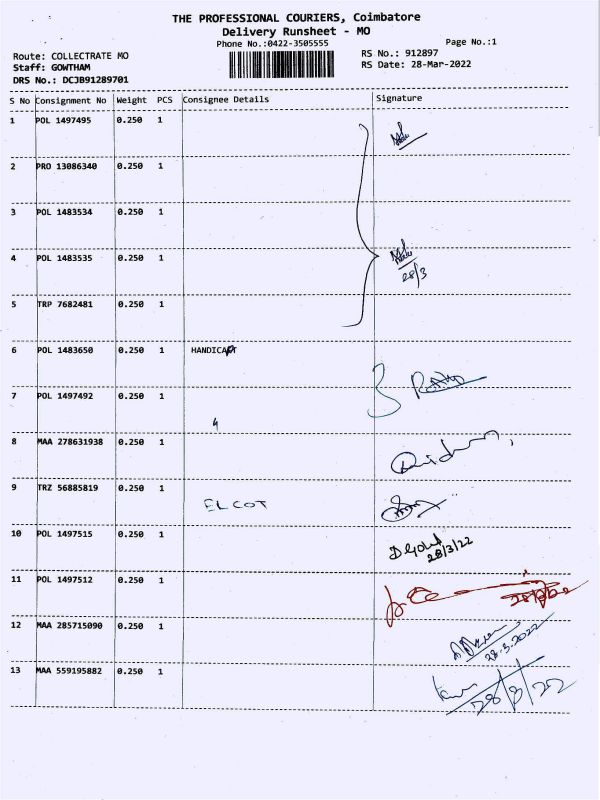 THE PROFESSIONAL COURIERS, Coimbatore
Delivery Runsheet - MO
Phone No.:0422-3505555
Page No.:1
Route: COLLECTRATE MO
RS No.: 912897
Staff: GOWTHAM
RS Date: 28-Mar-2022
DRS No.: DCJB91289701
S No Consignment No Weight PCS Consignee Details Signature
1 POL 1497495 0.250 1
2 PRO 13086340 0.250 1
3 POL 1483534 0.250 1
4 POL 1483535 0.250 1
28/3
5 TRP 7682481 0.250 1
6 POL 1483650 0.250 1 HANDICAPT
7 POL 1497492 0.250 1
8 MAA 278631938 0.250 1
9 TRZ 56885819 0.250 1 ELCOT
10 POL 1497515 0.250 1
28/3/22
11 POL 1497512 0.250 1
12 MAA 285715090 0.250 1
28-3-2022
13 MAA 559195882 0.250 1
28/3/22